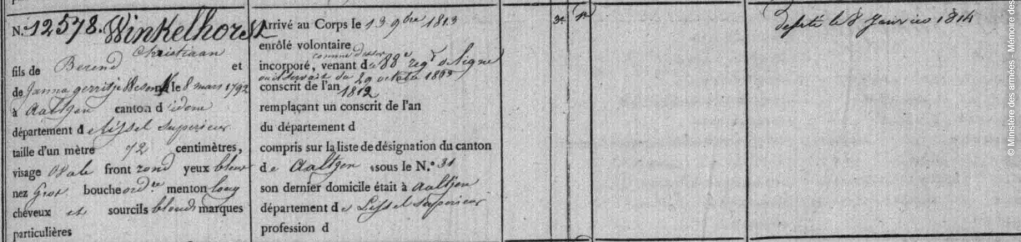 N.º 12,578. Winkelhorst
Christiaan
fils de Berend et
de Janna gerritje le 8 mars 1792
à Aaltzen canton d'idem
département de l'issel Superieur
taille d'un mètre 72 centimètres,
visage Ovale front rond yeux bleus
nez gros bouche ord.re menton long
cheveux et sourcils blonds marques
particulières
Arrivé au Corps le 13 9bre 1813
enrôlé volontaire
incorporé, venant du 88e regt de ligne
du 29 octobre 1813
conscrit de l'an 1812
remplaçant un conscrit de l'an
du département d
compris sur la liste de désignation du canton
de Aaltzen sous le N.º 31
son dernier domicile était à Aaltzen
département de L'issel Superieur
profession d
le 8 Janvier 1814
© Ministère des armées - Mémoire des